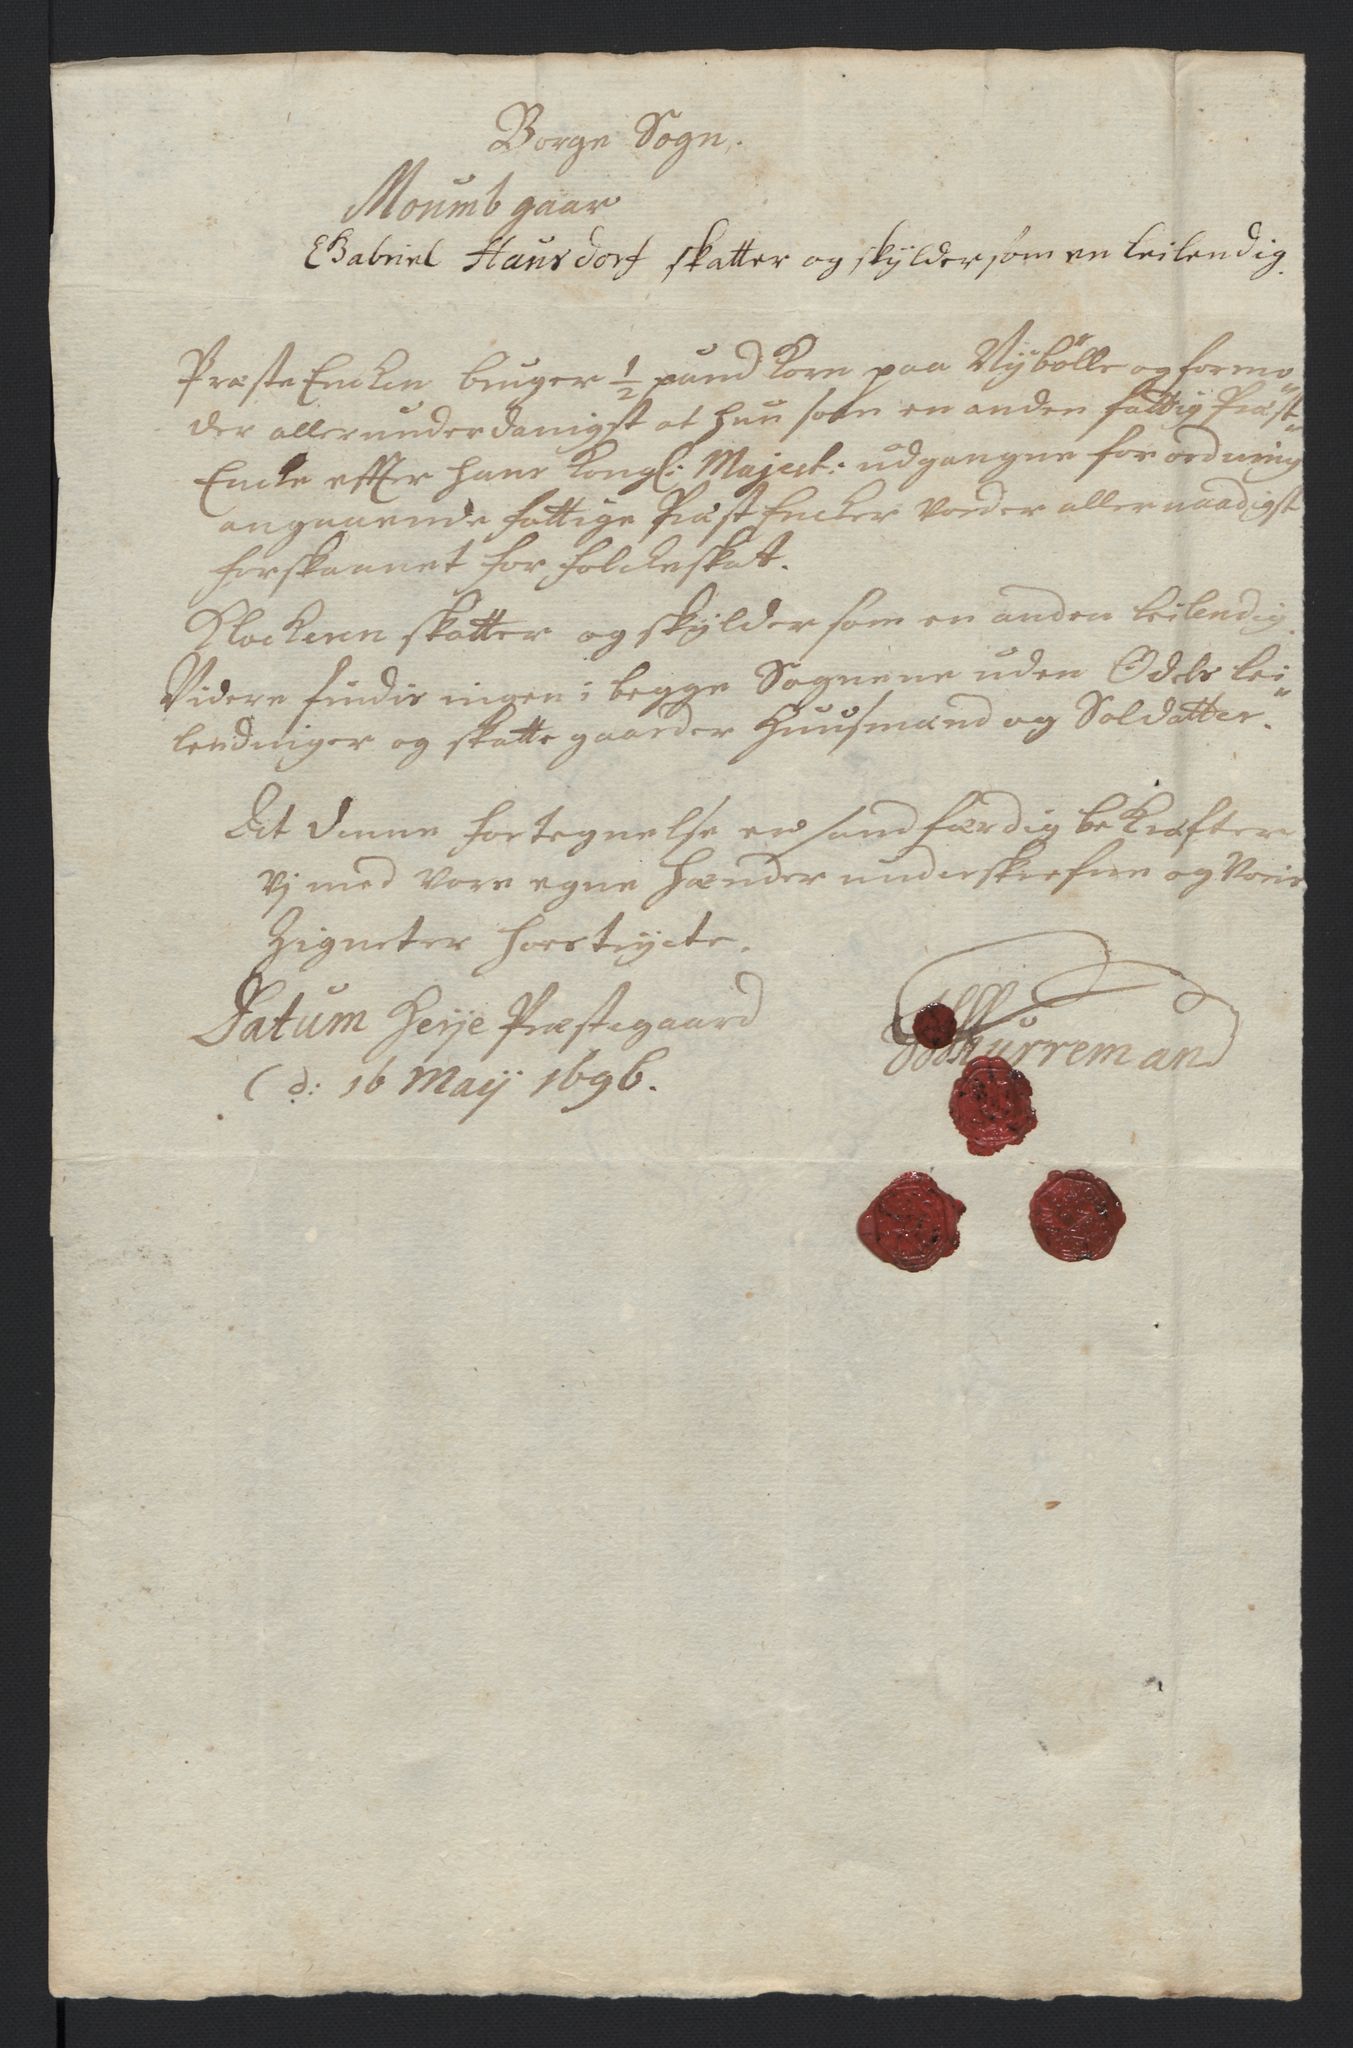 Borge Sogn.
Moumb gaar
Gabriel Hausdorf skatter og skylder som en leilendig.
Præste Encken bruger ½ pund Korn paa Nÿbölle og formo
der allerunderdanigst at hun som en anden fattig Præst=
Encke effter hans Kongl: Majest: udgangne forordning
angaaende fattige Præst Encker vorder allernaadigst
forskaanet for folckeskat.
Klockeren skatter og skylder som en anden leilendig.
Videre findis ingen i begge Sognene uden Odels lei=
lendinger og skatte gaarder Huusmænd og Soldatter.
At denne fortegnelse er sandfærdig bekræfter
vj med vore egne Hænder underskrefne og vore
Zigneter hostryckte.
Datum Præstegaard
d: 16 Maij 1696.